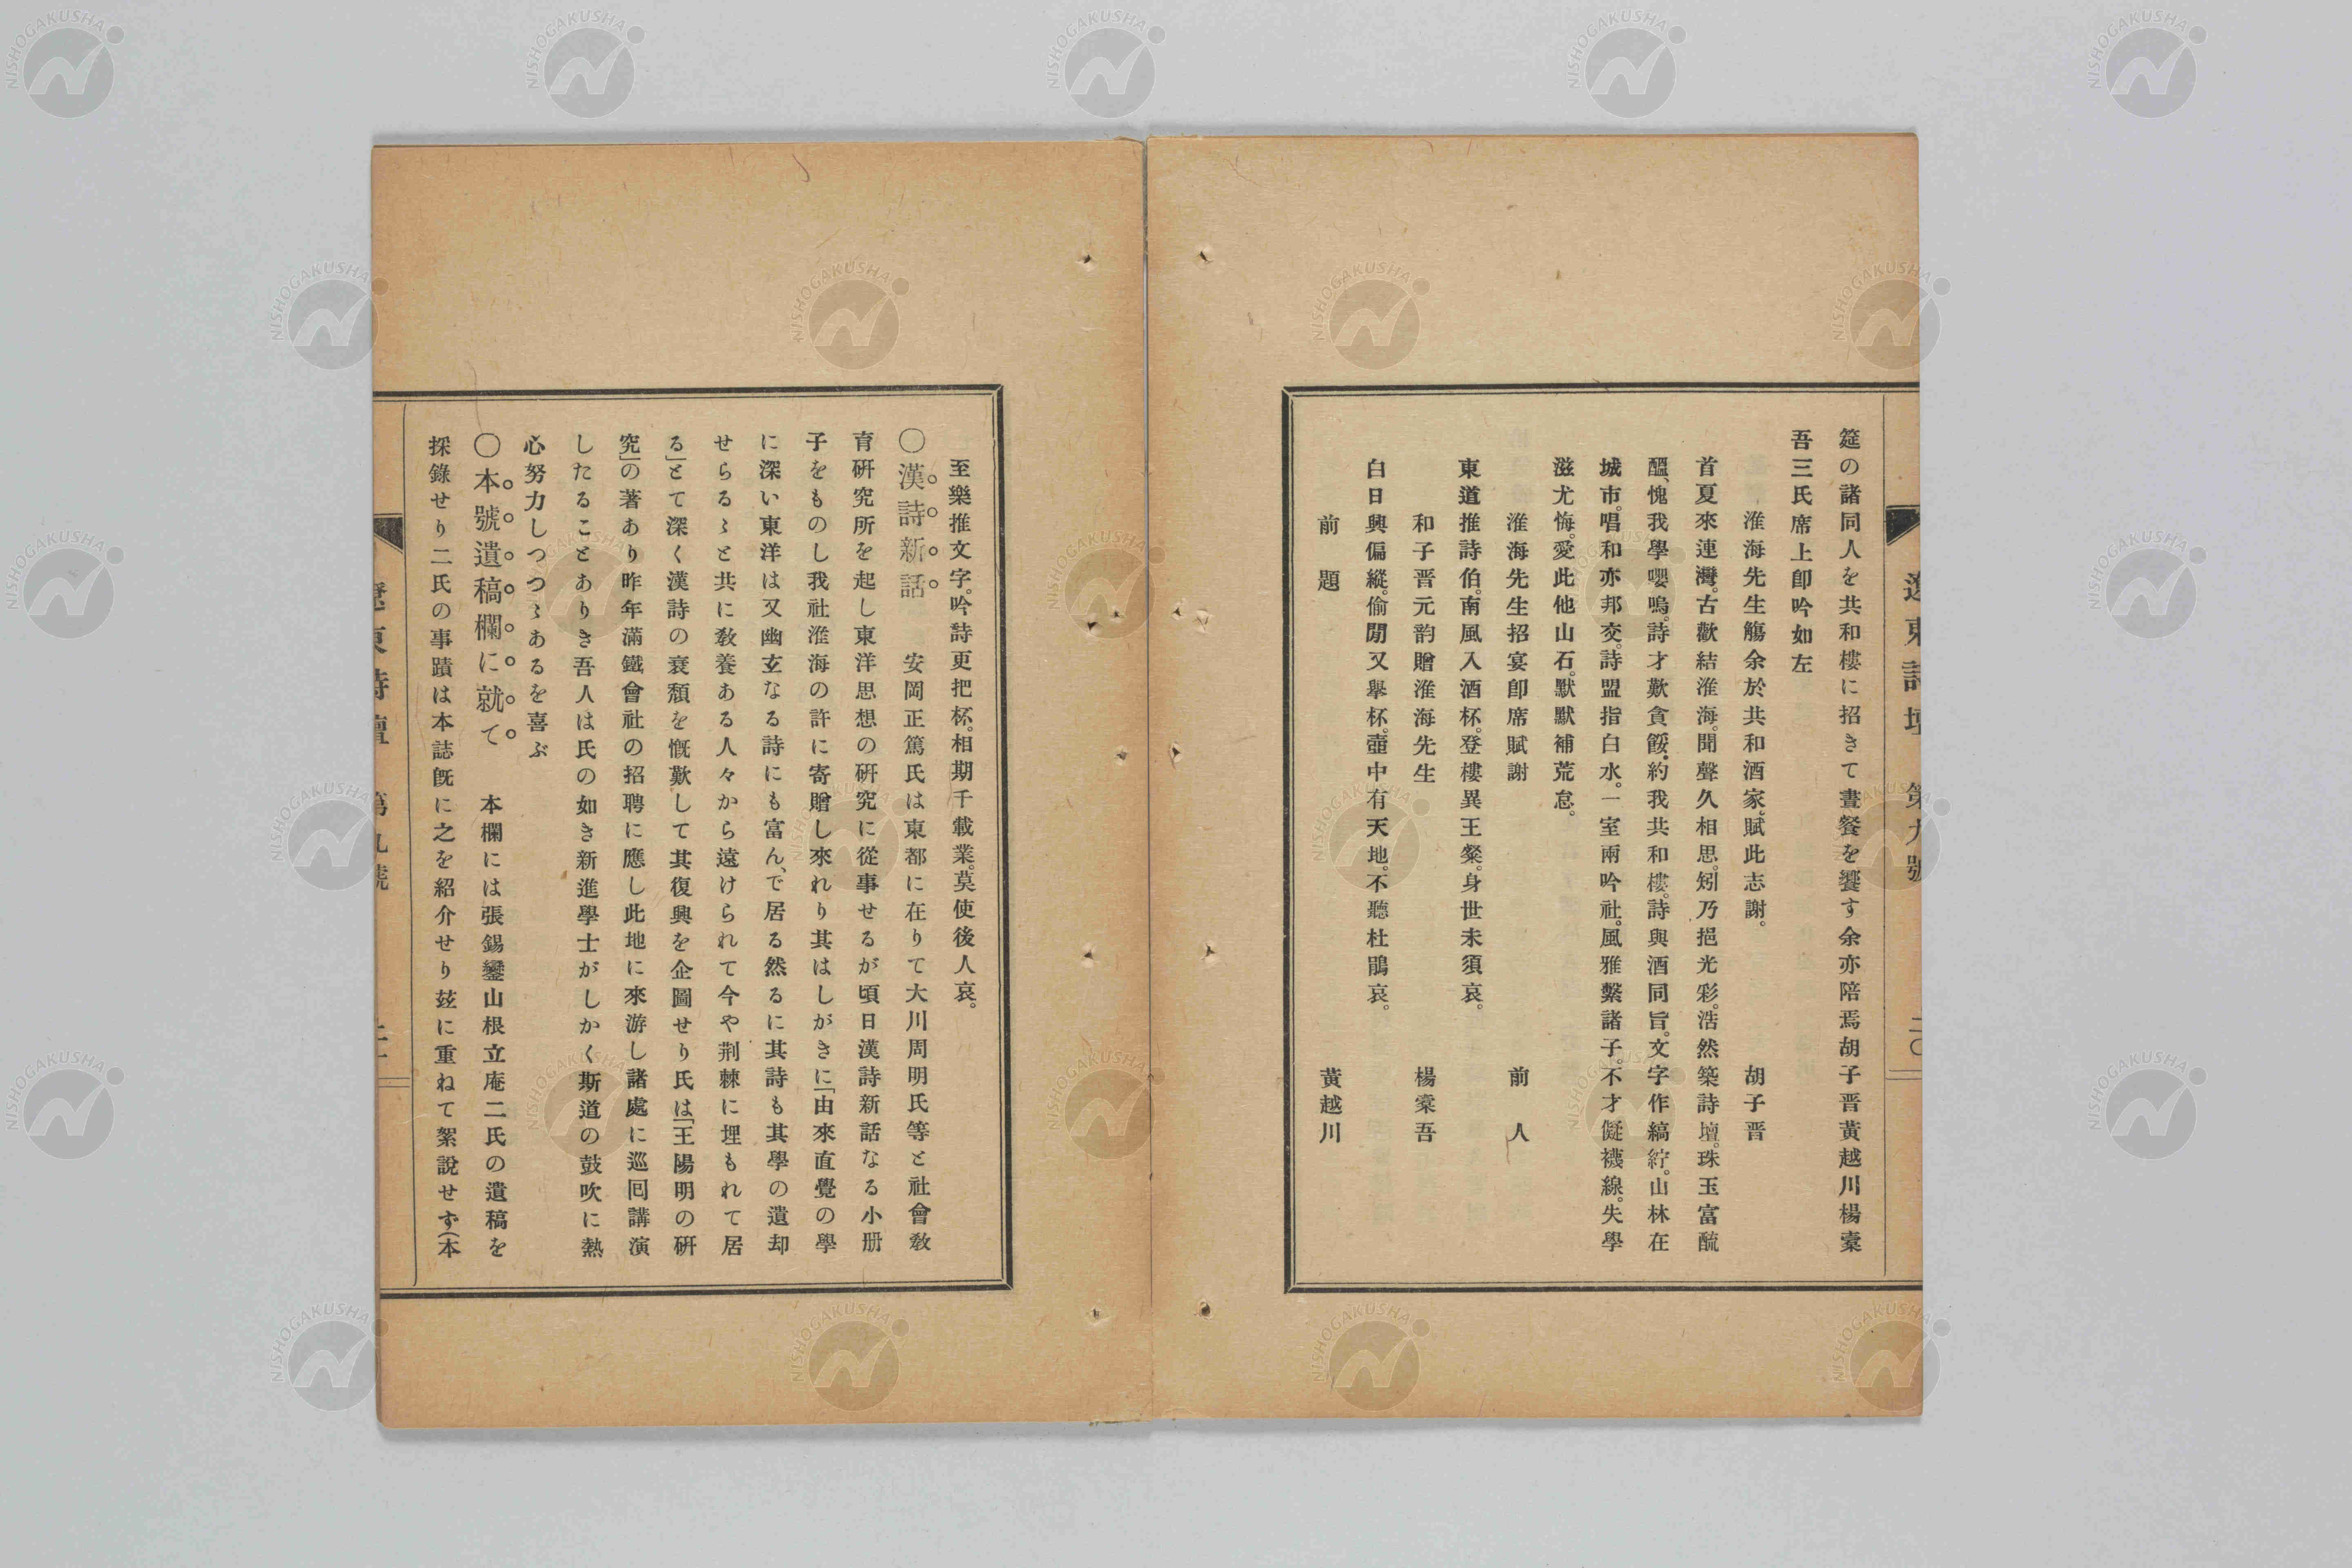 遼東詩壇 第九號 二〇
筵の諸同人を共和樓に招きて晝餐を饗す余亦陪焉胡子晋黃越川楊槖
吾三氏席上卽吟如左
淮海先生觴余於共和酒家。賦此志謝。 胡子晋
首夏來連灣。古歡結淮海。聞聲久相思。矧乃挹光彩。浩然築詩壇。珠玉富醞
醞、愧我學嚶鳴。詩才歎貪餒。約我共和樓。詩與酒同旨。文字作縞紵。山林在
城市。唱和亦邦交。詩盟指白水。一室兩吟社。風雅繫諸子。不才儗襪線。失學
滋尤悔。愛此他山石。默默補荒怠。
淮海先生招宴卽席賦謝 前人
東道推詩伯。南風入酒杯。登樓異王粲。身世未須哀。
和子晋元韵贈淮海先生 楊槖吾
白日興偏縱。偷閒又擧杯。壺中有天地。不聽杜鵑哀。
前題 黃越川
至樂推文字。吟詩更把杯。相期千載業。莫使後人哀。
〇漢詩新話 安岡正篤氏は東都に在りて大川周明氏等と社會敎
育硏究所を起し東洋思想の硏究に從事せるが頃日漢詩新話なる小册
子をものし我社淮海の許に寄贈し來れり其はしがきに「由來直覺の學
に深い東洋は又幽玄なる詩にも富ん、で居る然るに其詩も其學の遺却
せらるゝと共に敎養ある人々から遠けられて今や荆棘に埋もれて居
る」とて深く漢詩の衰頽を慨歎して其復興を企圖せり氏は「王陽明の硏
究」の著あり昨年滿鐵會社の招聘に應し此地に來游し諸處に巡囘講演
したることありき吾人は氏の如き新進學士がしかく斯道の鼓吹に熱
心努力しつつゝあるを喜ぶ
〇本號遺稿欄に就て 本欄には張錫鑾山根立庵二氏の遺稿を
採錄せり二氏の事蹟は本誌旣に之を紹介せり玆に重ねて絮說せず(本
遼東詩壇 第九號
NISHOGAKUSHA